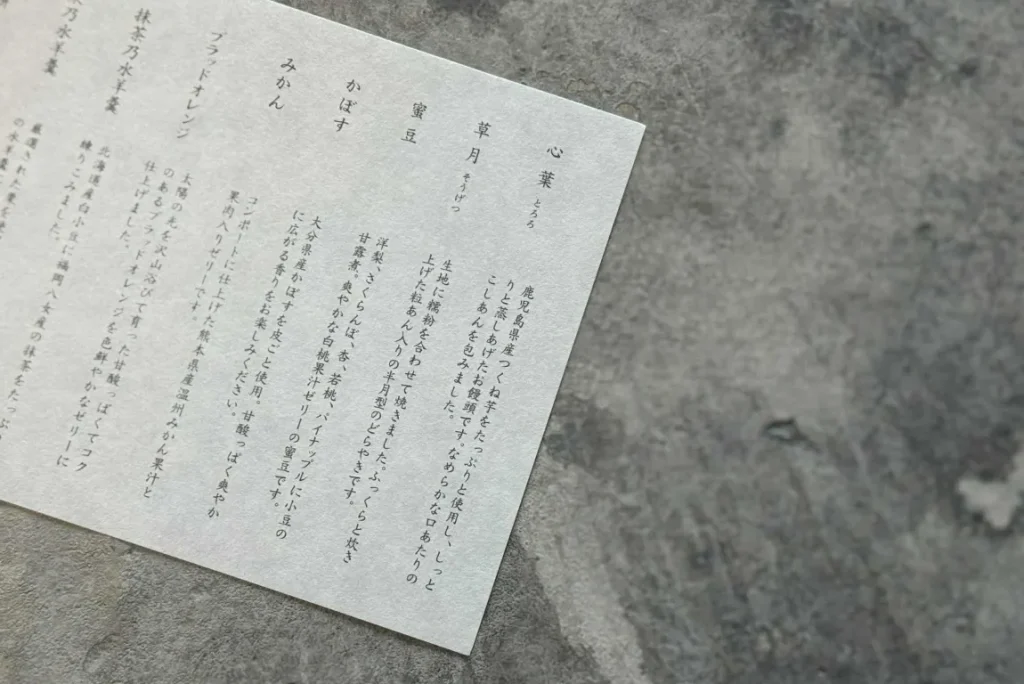 心葉 とろろ
鹿児島県産つくね芋をたっぷりと使用し、しっと
りと蒸しあげたお饅頭です。なめらかな口あたりの
こしあんを包みました。
草月 そうげつ
生地に糯粉を合わせて焼きましたふっくらと炊き
上げた粒あん入りの半月型のどらやきです。
蜜豆
洋梨、さくらんぼ、杏、若桃、パイナップルに小豆の
甘露煮。爽やかな白桃果汁ゼリーの蜜豆です。
かぼす
大分県産かぼすを皮ごと使用。甘酸っぱく爽やか
に広がる香りをお楽しみください。
みかん
コンポートに仕上げた熊本県産温州みかん果汁と
果肉入りゼリーです。
ブラッドオレンジ
太陽の光を沢山浴びて育った甘酸っぱくてコク
のあるブラッドオレンジを色鮮やかなゼリーに
仕上げました。
抹茶乃水羊羹
北海道産白小豆に福岡八女産の抹茶をたっぷり
練りこみました。
乃水羊羹
厳選された
の水羊羹